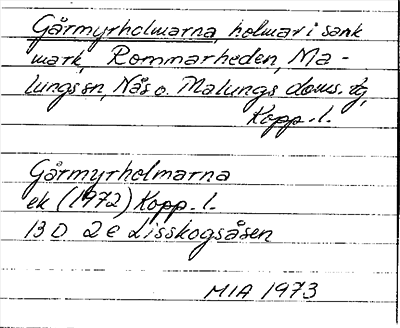 Gårmyrholmarna, holmar i sank
mark, Rommarheden, Ma-
lungs sn, Nås o. Malungs doms. dg,
Kopp. l.
Gårmyrholmarna
ek (1972) Kopp. l.
13 D 2 e Lisskogsåsen
MIA 1973